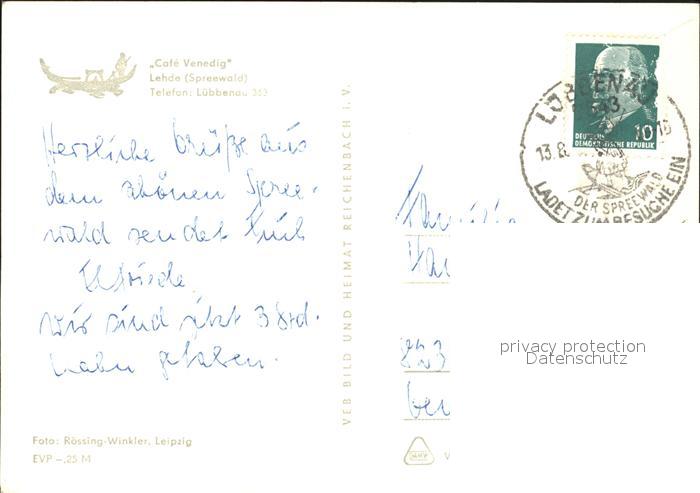 „Café Venedig"
Lehde (Spreewald)
Telefon: Lübbenau 363
Herzliche Grüße aus
dem schönen Spree-
wald sendet Euch
Elfriede
wir sind jetzt 3 Std.
Kahn gefahren.
Foto: Rössing-Winkler, Leipzig
EVP –,25 M
VEB BILD UND HEIMAT REICHENBACH i. V.
LÜBBENAU
13.8.
10
DEUTSCHE
DEMOKRATISCHE REPUBLIK
DER SPREEWALD
LADET ZUM BESUCHE EIN
Familie
823
privacy protection
Datenschutz
V